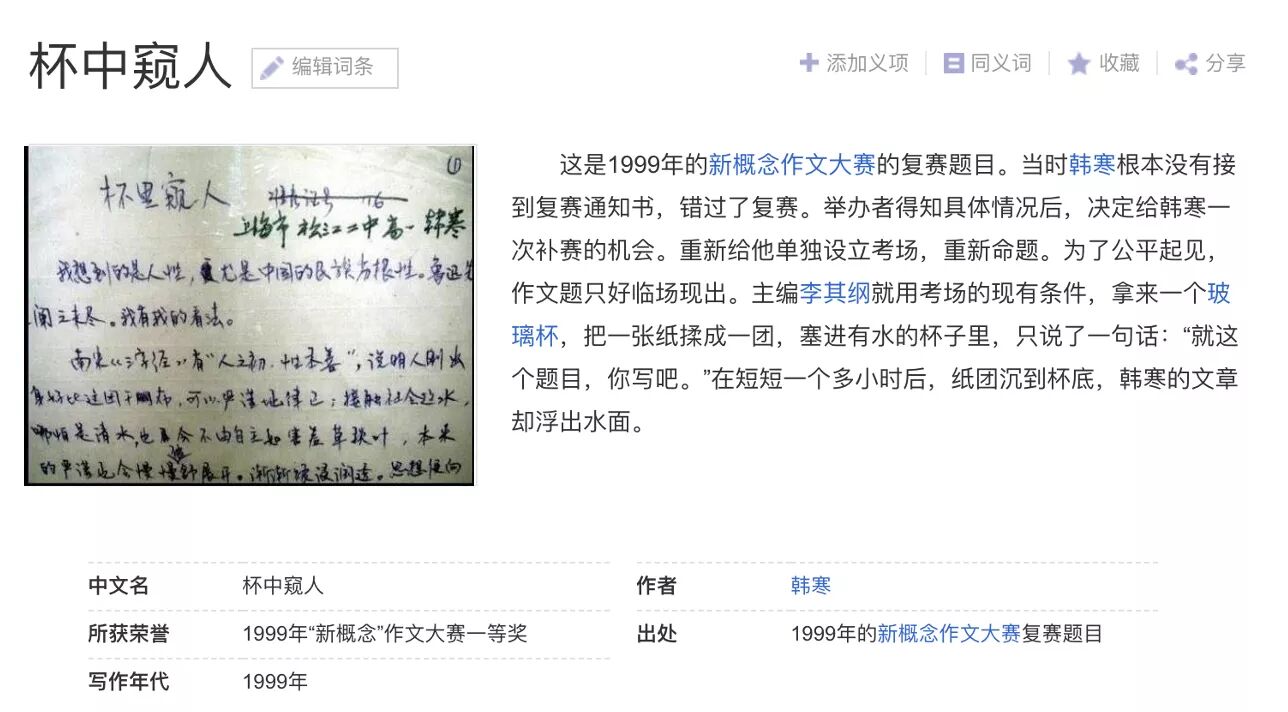 杯中窥人
编辑词条
添加义项
同义词
收藏
分享
(1)
杯里窥人
上海市 松江二中 高一 韩寒
我想到的是人性，尤是中国的民族劣根性。鲁迅先
阐之未尽。我有我的看法。
南宋《三字经》有“人之初，性本善”，说明人刚出
身好比这团干布，可以严谨地律己；接触社会这水，
哪怕是清水，也会不由自主如害羞草叶，本来
的严谨也会慢慢舒展开，渐渐浸润透。思想便向
这是1999年的新概念作文大赛的复赛题目。当时韩寒根本没有接
到复赛通知书，错过了复赛。举办者得知具体情况后，决定给韩寒一
次补赛的机会。重新给他单独设立考场，重新命题。为了公平起见，
作文题只好临场现出。主编李其纲就用考场的现有条件，拿来一个玻
璃杯，把一张纸揉成一团，塞进有水的杯子里，只说了一句话：“就这
个题目，你写吧。”在短短一个多小时后，纸团沉到杯底，韩寒的文章
却浮出水面。
中文名 杯中窥人
作者 韩寒
所获荣誉 1999年“新概念”作文大赛一等奖
出处 1999年的新概念作文大赛复赛题目
写作年代 1999年